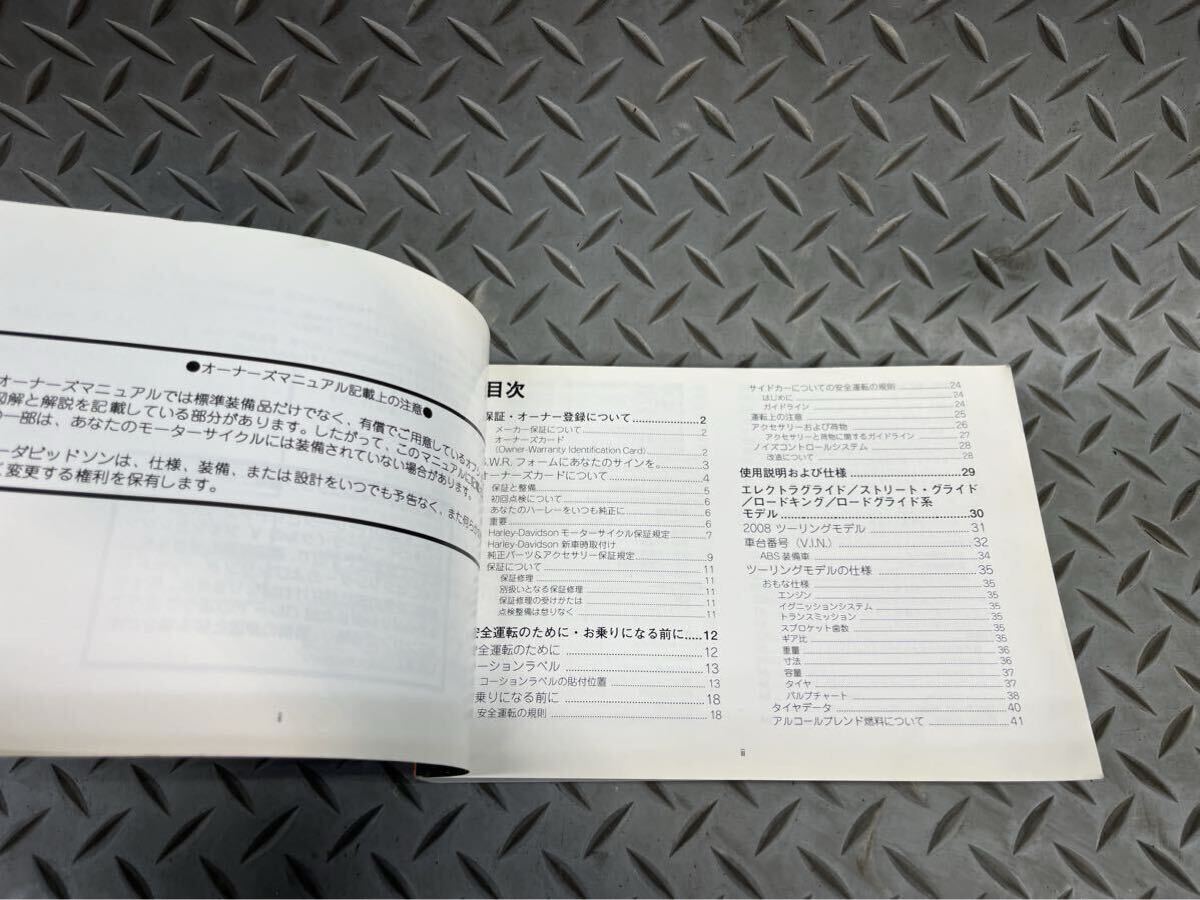 ●オーナーズマニュアル記載上の注意●
オーナーズマニュアルでは標準装備品だけでなく、有償でご用意しているオプ
図解と解説を記載している部分があります。したがって、このマニュアルに記載
の一部は、あなたのモーターサイクルには装備されていない場合があります。
ーダビッドソンは、仕様、装備、または設計をいつでも予告なく、また何ら
く変更する権利を保有します。
ii
目次
保証・オーナー登録について 2
メーカー保証について 2
オーナーズカード
(Owner-Warranty Identification Card) 2
S.W.R. フォームにあなたのサインを。 3
オーナーズカードについて 4
保証と整備 5
初回点検について 6
あなたのハーレーをいつも純正に 6
重要 6
Harley-Davidson モーターサイクル保証規定 7
Harley-Davidson 新車時取付け
純正パーツ&アクセサリー保証規定 9
保証について 11
保証修理 11
別扱いとなる保証修理 11
保証修理の受けかたは 11
点検整備は怠りなく 11
安全運転のために・お乗りになる前に 12
安全運転のために 12
コーションラベル 13
コーションラベルの貼付位置 13
乗りになる前に 18
安全運転の規則 18
サイドカーについての安全運転の規則 24
はじめに 24
ガイドライン 24
運転上の注意 25
アクセサリーおよび荷物 26
アクセサリーと荷物に関するガイドライン 27
ノイズコントロールシステム 28
改造について 28
使用説明および仕様 29
エレクトラグライド/ストリート・グライド
/ロードキング/ロードグライド系
モデル 30
2008 ツーリングモデル 31
車台番号 (V.I.N.) 32
ABS 装備車 34
ツーリングモデルの仕様 35
おもな仕様 35
エンジン 35
イグニッションシステム 35
トランスミッション 35
スプロケット歯数 35
ギア比 35
重量 36
寸法 36
容量 37
タイヤ 37
バルブチャート 38
タイヤデータ 40
アルコールブレンド燃料について 41
iii